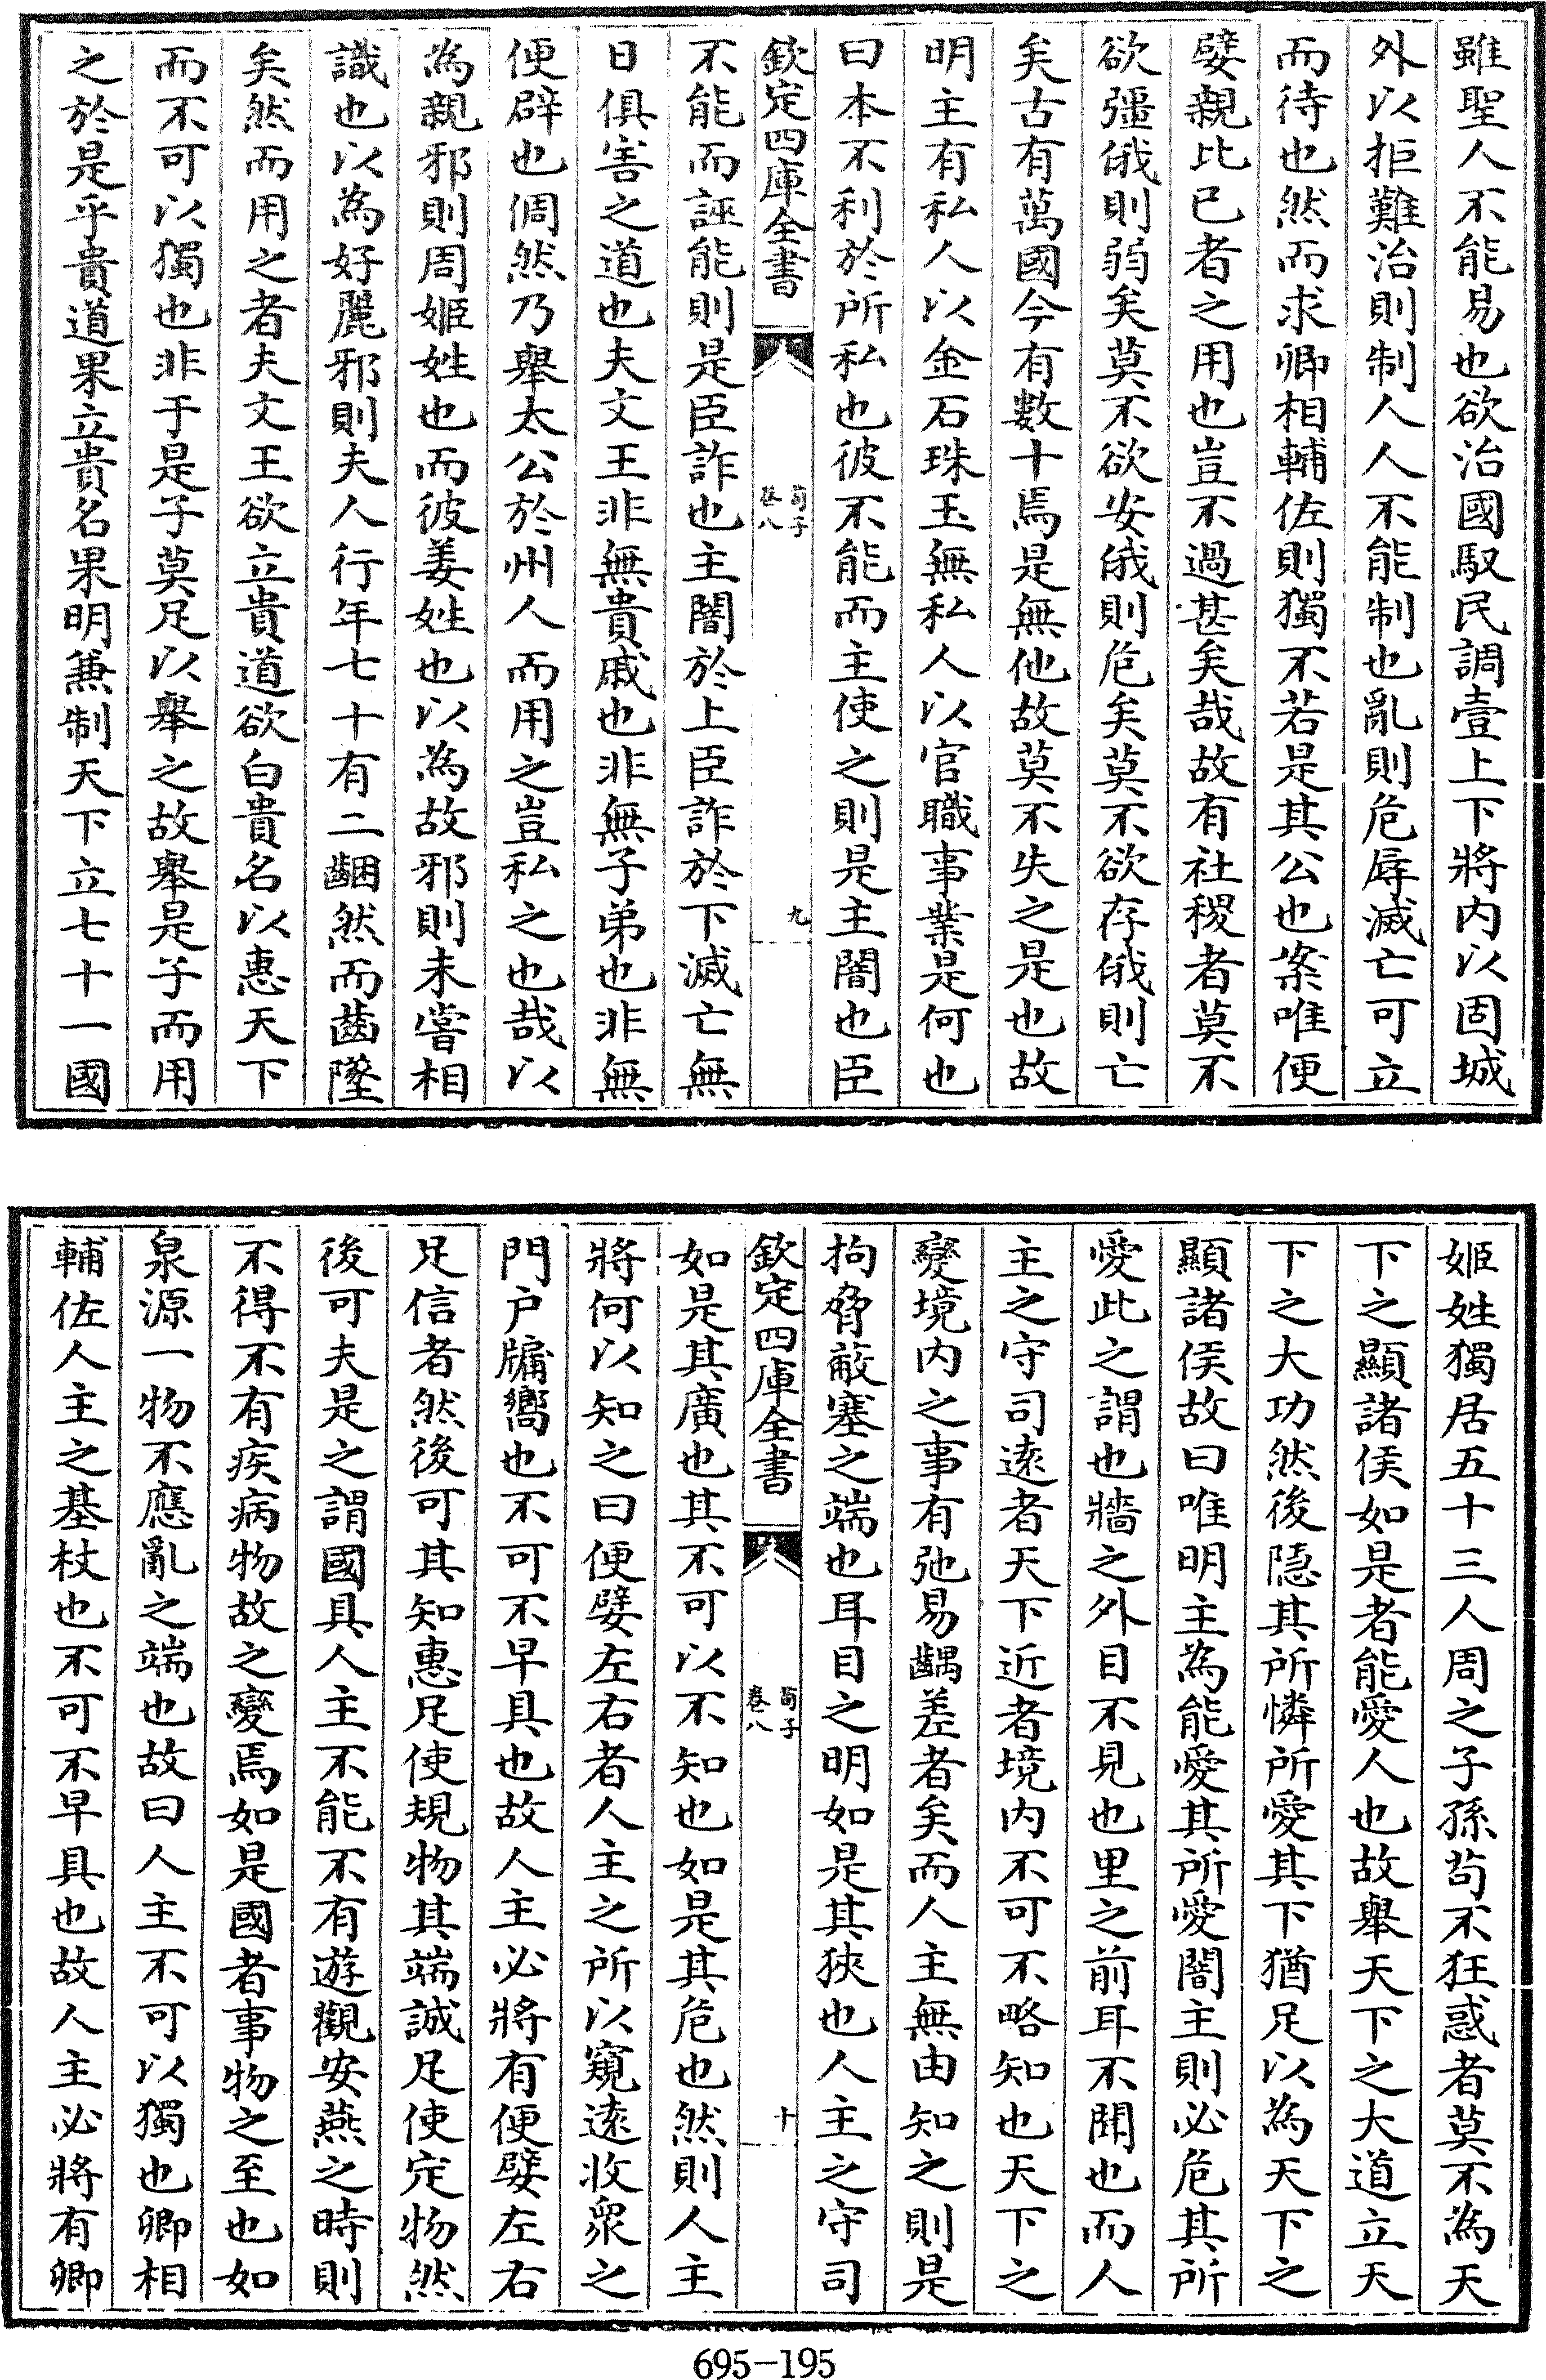 雖聖人不能易也欲治國馭民調壹上下將内以固城
外以拒難治則制人人不能制也亂則危辱滅亡可立
而待也然而求卿相輔佐則獨不若是其公也案唯便
嬖親比已者之用也豈不過甚矣哉故有社稷者莫不
欲彊俄則弱矣莫不欲安俄則危矣莫不欲存俄則亡
矣古有萬國今有數十焉是無他故莫不失之是也故
明主有私人以金石珠玉無私人以官職事業是何也
曰本不利於所私也彼不能而主使之則是主闇也臣
欽定四庫全書
荀子
卷八
九
不能而誣能則是臣詐也主闇於上臣詐於下滅亡無
日俱害之道也夫文王非無貴戚也非無子弟也非無
便辟也倜然乃舉太公於州人而用之豈私之也哉以
為親邪則周姬姓也而彼姜姓也以為故邪則未嘗相
識也以為好麗邪則夫人行年七十有二齫然而齒墜
矣然而用之者夫文王欲立貴道欲白貴名以惠天下
而不可以獨也非于是子莫足以舉之故舉是子而用
之於是乎貴道果立貴名果明兼制天下立七十一國
姬姓獨居五十三人周之子孫苟不狂惑者莫不為天
下之顯諸侯如是者能愛人也故舉天下之大道立天
下之大功然後隱其所憐所愛其下猶足以為天下之
顯諸侯故曰唯明主為能愛其所愛闇主則必危其所
愛此之謂也牆之外目不見也里之前耳不聞也而人
主之守司遠者天下近者境内不可不略知也天下之
變境内之事有弛易齵差者矣而人主無由知之則是
拘脅蔽塞之端也耳目之明如是其狹也人主之守司
欽定四庫全書
荀子
卷八
十
如是其廣也其不可以不知也如是其危也然則人主
將何以知之曰便嬖左右者人主之所以窺遠收衆之
門户牖嚮也不可不早具也故人主必將有便嬖左右
足信者然後可其知惠足使規物其端誠足使定物然
後可夫是之謂國具人主不能不有遊觀安燕之時則
不得不有疾病物故之變焉如是國者事物之至也如
泉源一物不應亂之端也故曰人主不可以獨也卿相
輔佐人主之基杖也不可不早具也故人主必將有卿
695-195